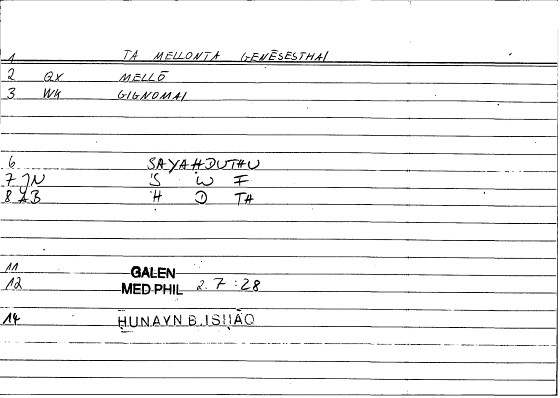 1 TA MELLONTA GENĒSESTHAI
2 QX MELLŌ
3 WK GIGNOMAI
6 SAYAḤDUTHU
7 JN S W F
8 AB H D TA
11 GALEN
12 MED PHIL 2.7:28
14 ḤUNAYN B. ISḤĀQ